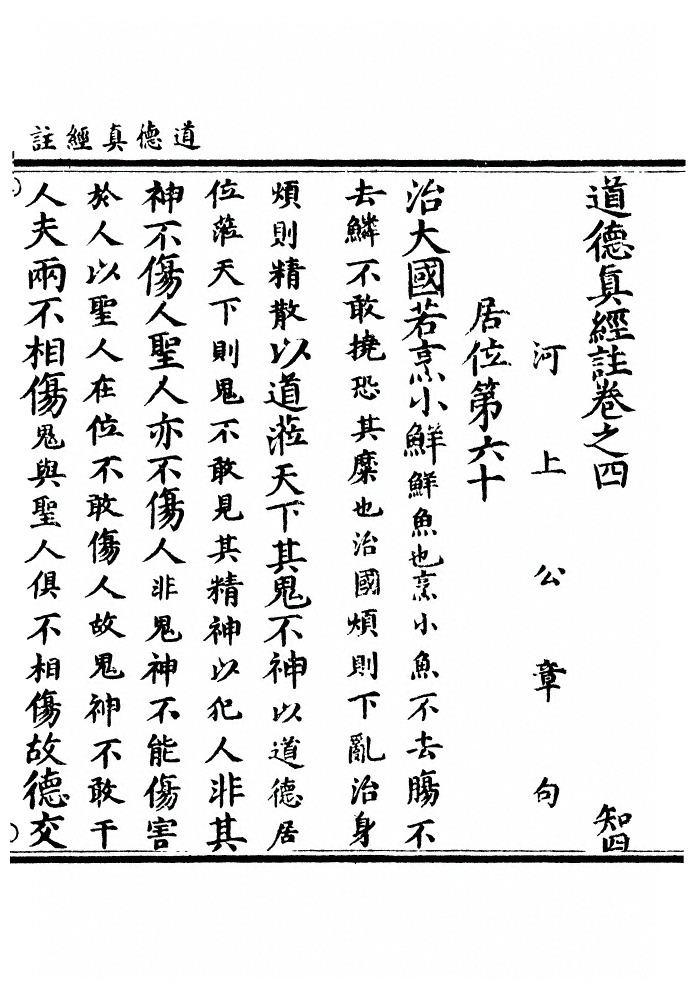 道德真經註
道德真經註卷之四　知四
河上公章句
居位第六十
治大國若烹小鮮鮮魚也烹小魚不去腸不
去鱗不敢撓恐其糜也治國煩則下亂治身
煩則精散以道蒞天下其鬼不神以道德居
位蒞天下則鬼不敢見其精神以犯人非其
神不傷人聖人亦不傷人非鬼神不能傷害
於人以聖人在位不敢傷人故鬼神不敢干
人夫兩不相傷鬼與聖人俱不相傷故德交